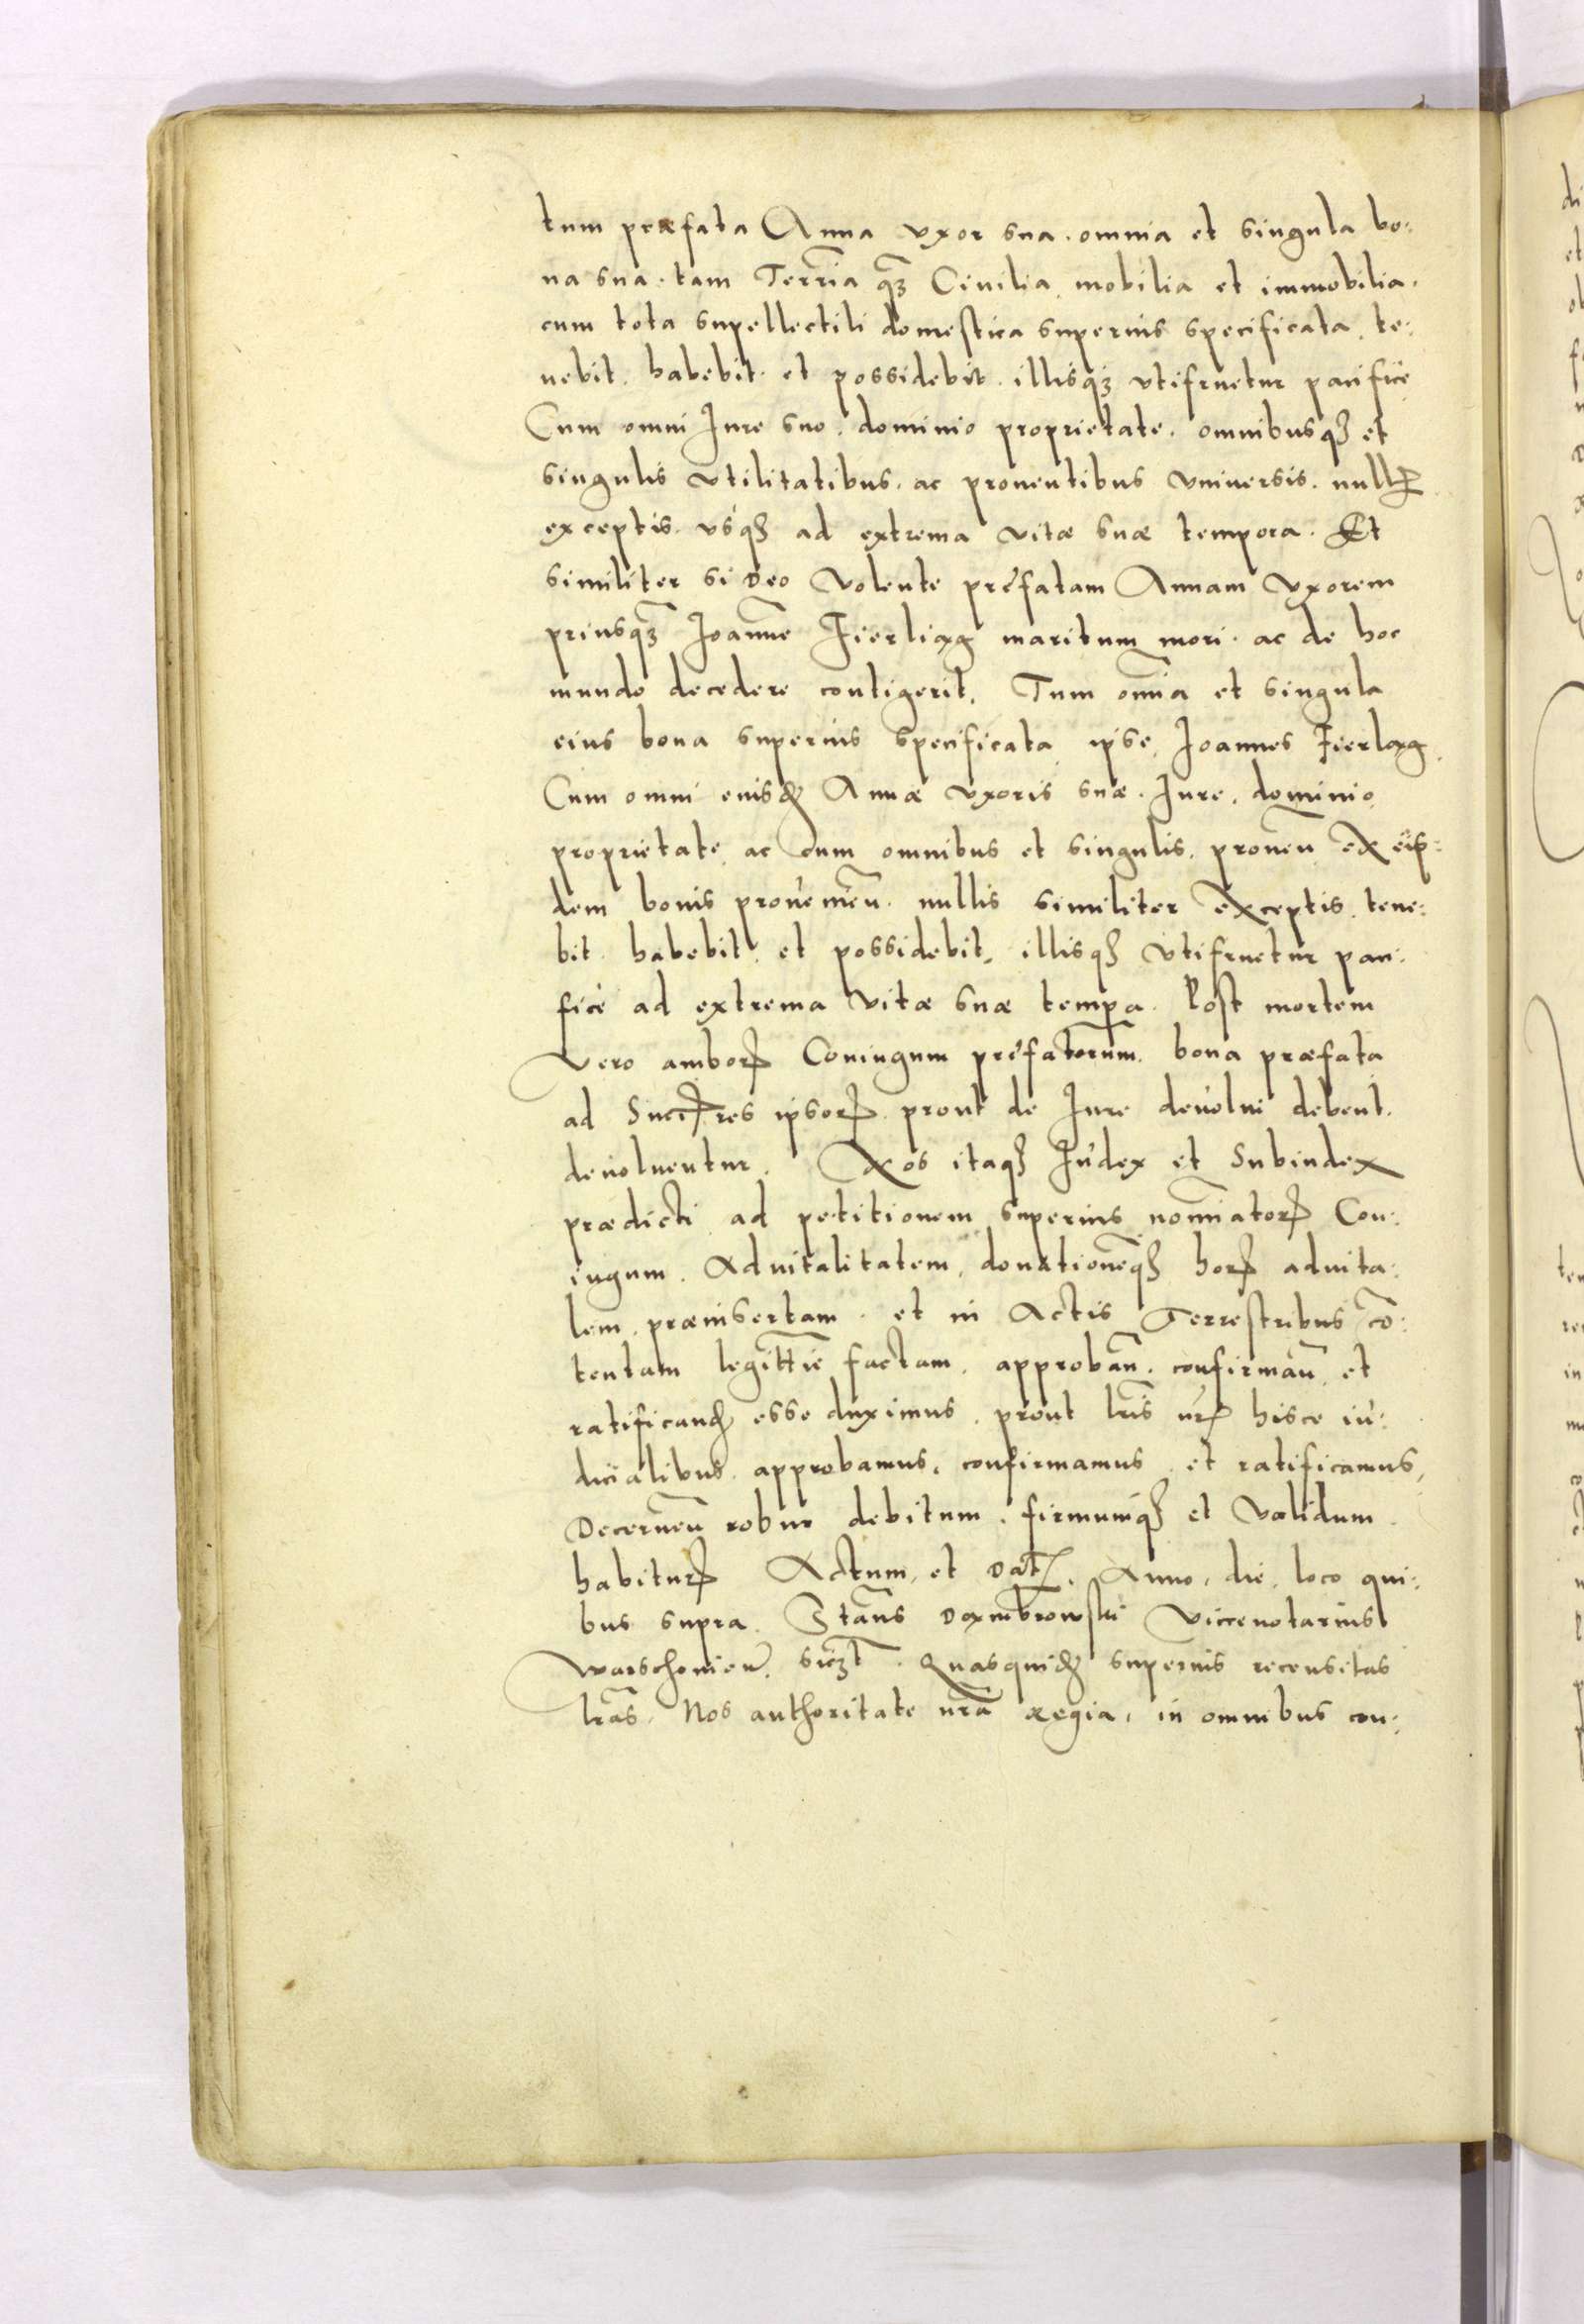 tum præfata Anna vxor sua. omnia et singula bo:
na sua. tam Terr̃ia q̃ꝫ Ciuilia mobilia et immobilia.
cum tota supellectili domestica superius specificata. te:
nebit. habebit. et possidebit. illisqꝫ vtifruetur pacificè
Cum omni Iure suo. dominio proprietate. omnibusqꝫ et
singulis vtilitatibus. ac prouentibus vniuersis. null
exceptis. vsqꝫ ad extrema vitæ suæ tempora. Et
similiter si Deo volente præfatam Annam vxorem
priusq̃ꝫ Ioannẽ Fierliag maritum mori. ac de hoc
mundo decedere contigerit. Tum om̃ia et singula
eius bona superius specificata ipse Ioannes Fierlag
Cum omni eiusdꝫ Annæ vxoris suæ. Iure. dominio
proprietate ac cum omnibus et singulis. prouen̄ ex eis:
dem bonis prouemen̄. nullis similiter exceptis. tene:
bit. habebit. et possidebit. illisqꝫ vtifruetur paci:
ficè ad extrema vitæ suæ tempa. Post mortem
vero amboꝝ Coniugum præfatorum. bona præfata
ad Succꝝres ipsoꝝ. prout de Iure deuolui debent.
deuoluentur. Nos itaqꝫ Iudex et Subiudex
prædicti ad petitionem superius nom̃iatoꝝ Con:
iugum. Aduitalitatem, donationẽqꝫ hoꝝ aduita:
lem. præinsertam. et in Actis Terrestribus cõ:
tentam legittimẽ factam. approban̄. confirman̄ et
ratificandꝫ esse duximus. prout l̃ris nr̃is hisce iu:
dicialibus. approbamus, confirmamus et ratificamus,
Decernen̄ robur debitum. firmumqꝫ et validum
habituꝝ Actum, et Dat. Anno, die, loco qui:
bus supra. Stañs Doxmbrowski Viccenotarius
Warschouien̄. Quasquidꝫ superius recensitas
l̃ras. Nos authoritate nr̃a Regia, in omnibus con: